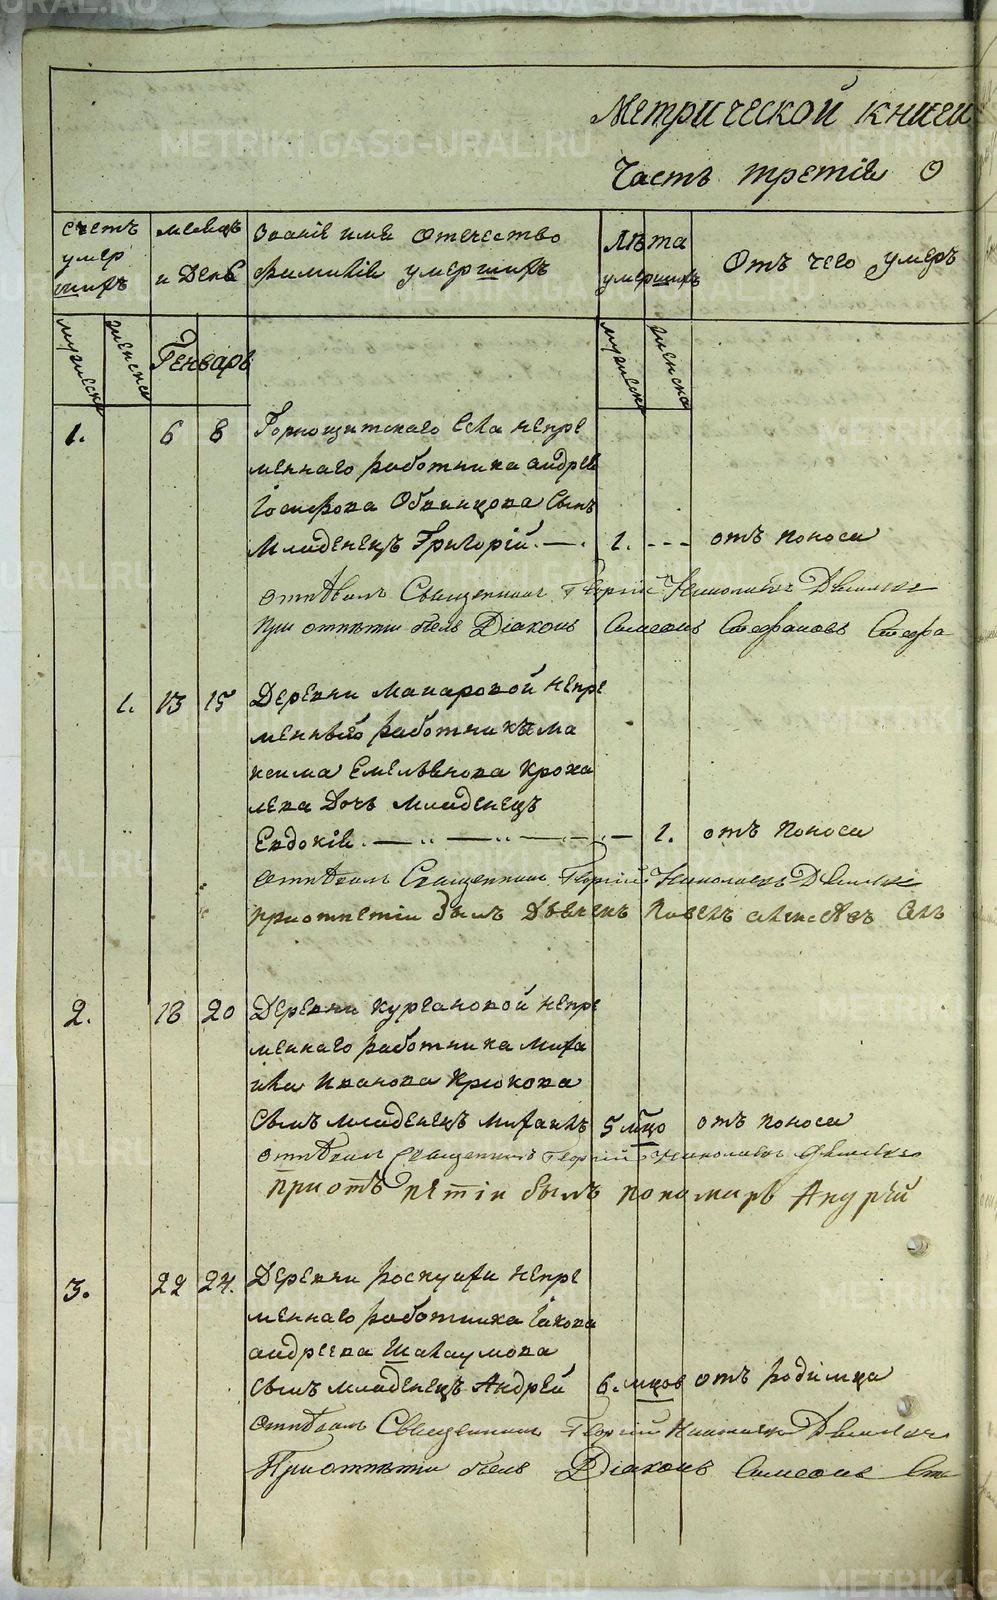 Метрической книги
Часть третія О
счетъ умер шихъ
месяцъ и День
званіе имя отечество фамиліе умершихъ
Лѣта умершихъ
Отъ чего умеръ
мужеска
женска
Генварь
мужеска
женска
1. 6 8 Горнощитскаго села непре
меннаго работника андрея
Іосифова Обвинцова сынъ
младенецъ Григорій. 1. отъ поноса
отпѣвалъ Священникъ Георгій Николаевъ
при отпѣти былъ Діаконъ Симеонъ Стефановъ
1. 13 15 Деревни Макаровой непре
меннаго работника ма
ксима Емельянова Кроха
лева дочь младенецъ
Евдокія 1. отъ поноса
отпѣвалъ Священникъ Георгій Николаевъ
приотпетіи былъ Дьячекъ Павелъ алексеевъ
2. 18 20 Деревни Кургановой непре
меннаго работника миха
ила Иванова Крюкова
сынъ младенецъ михаилъ 5 мцо отъ поноса
отпѣвалъ Священникъ Георгій Николаевъ
приотъ петіи былъ пономарь Андрѣй
3. 22 24. Деревни роскуихи непре
меннаго работника Іакова
андреева Шалаумова
сынъ младенецъ Андрей 6. мцов отъ родимца
отпѣвалъ Священникъ Георгій Николаевъ
Приотпѣти былъ Діаконъ Симеонъ
METRIKI.GASO-URAL.RU